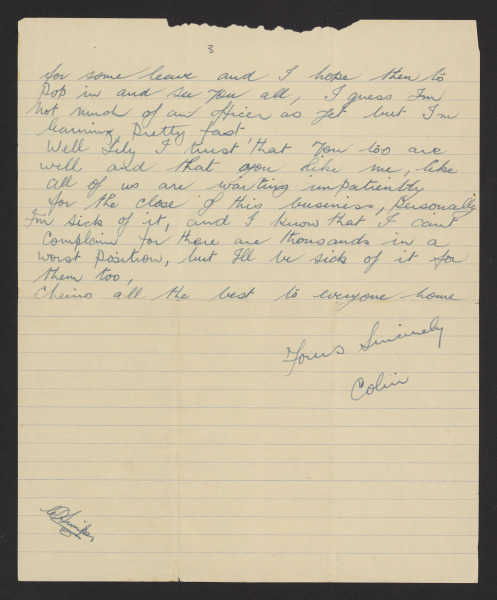 3
for some leave and I hope then to
Pop in and see you all, I guess I'm
not much of an officer as yet but I'm
learning Pretty fast
Well Lily I trust that you too are
well and that you like me, like
all of us are waiting impatiently
for the close of this business, Personally
I'm sick of it, and I know that I can't
Complain for there are thousands in a
worst Position, but I'll be sick of it for
them too,
Cheerio all the best to everyone home
Yours Sincerely
Colin